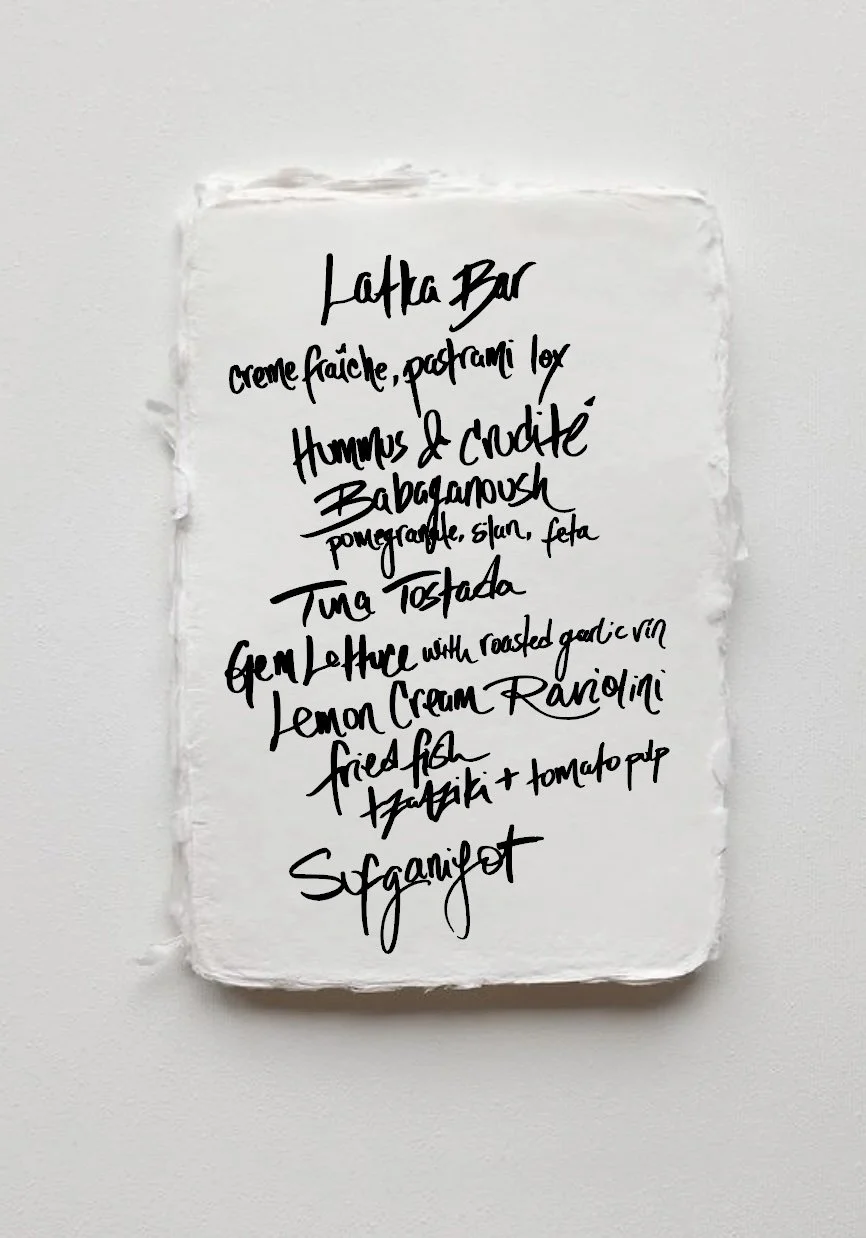 Latka Bar
creme fraîche, pastrami lox
Hummus & Crudité
Babaganoush
pomegranate, silan, feta
Tuna Tostada
Gem Lettuce with roasted garlic vin
Lemon Cream Raviolini
fried fish
tzatziki + tomato pulp
Sufganiyot